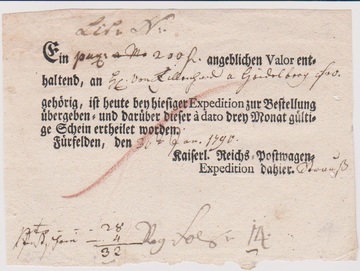 Lit: N:
Ein 200 f. angeblichen Valor ent-
haltend, an von a Heidelberg
gehörig, ist heute bey hiesiger Expedition zur Bestellung
übergeben - und darüber dieser à dato drey Monat gülti-
ge Schein ertheilet worden.
Fürfelden, den 1790.
Kaiserl. Reichs-Postwagen-
Expedition dahier. Strauß
28
4
32